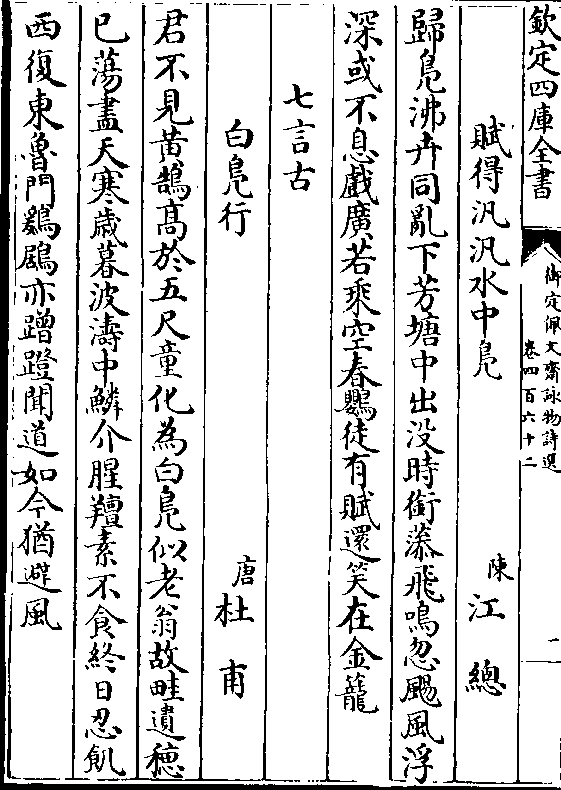 欽定四庫全書
御定佩文齋詠物詩選
卷四百六十二
二
賦得汎汎水中鳧 陳 江總
歸鳧沸卉同亂下芳塘中出没時銜藻飛鳴忽颺風浮
深或不息戲廣若乘空春鸚徒有賦還笑在金籠
七言古
白鳧行 唐 杜甫
君不見黃鵠髙於五尺童化為白鳧似老翁故畦遺穗
已蕩盡天寒歲暮波濤中鱗介腥羶素不食終日忍飢
西復東魯門鶢鶋亦蹭蹬聞道如今猶避風